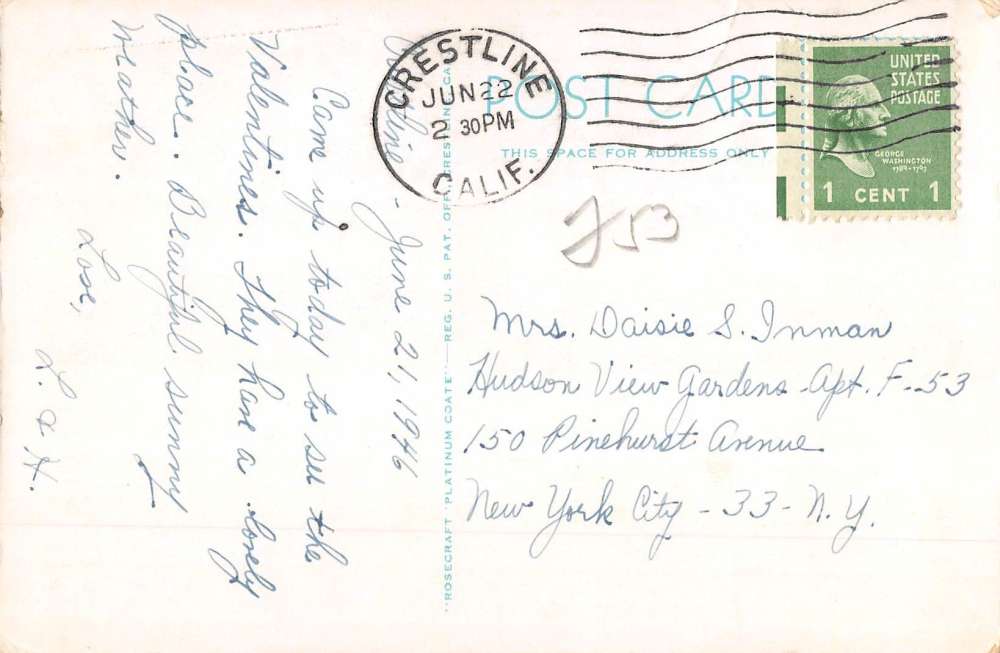 Crestline - June 21, 1946
Came up today to see the
Valentines. They have a lovely
place. Beautiful sunny
weather.
Love,
L. & H.
CRESTLINE
JUN 22
2 30PM
CALIF.
POST CARD
THIS SPACE FOR ADDRESS ONLY
UNITED
STATES
POSTAGE
GEORGE
WASHINGTON
1789-1797
1 CENT 1
F53
Mrs. Daisie S. Inman
Hudson View Gardens - Apt. F-53
150 Pinehurst Avenue
New York City - 33 - N.Y.
"ROSECRAFT 'PLATINUM COATE'"—REG. U. S. PAT. OFF.